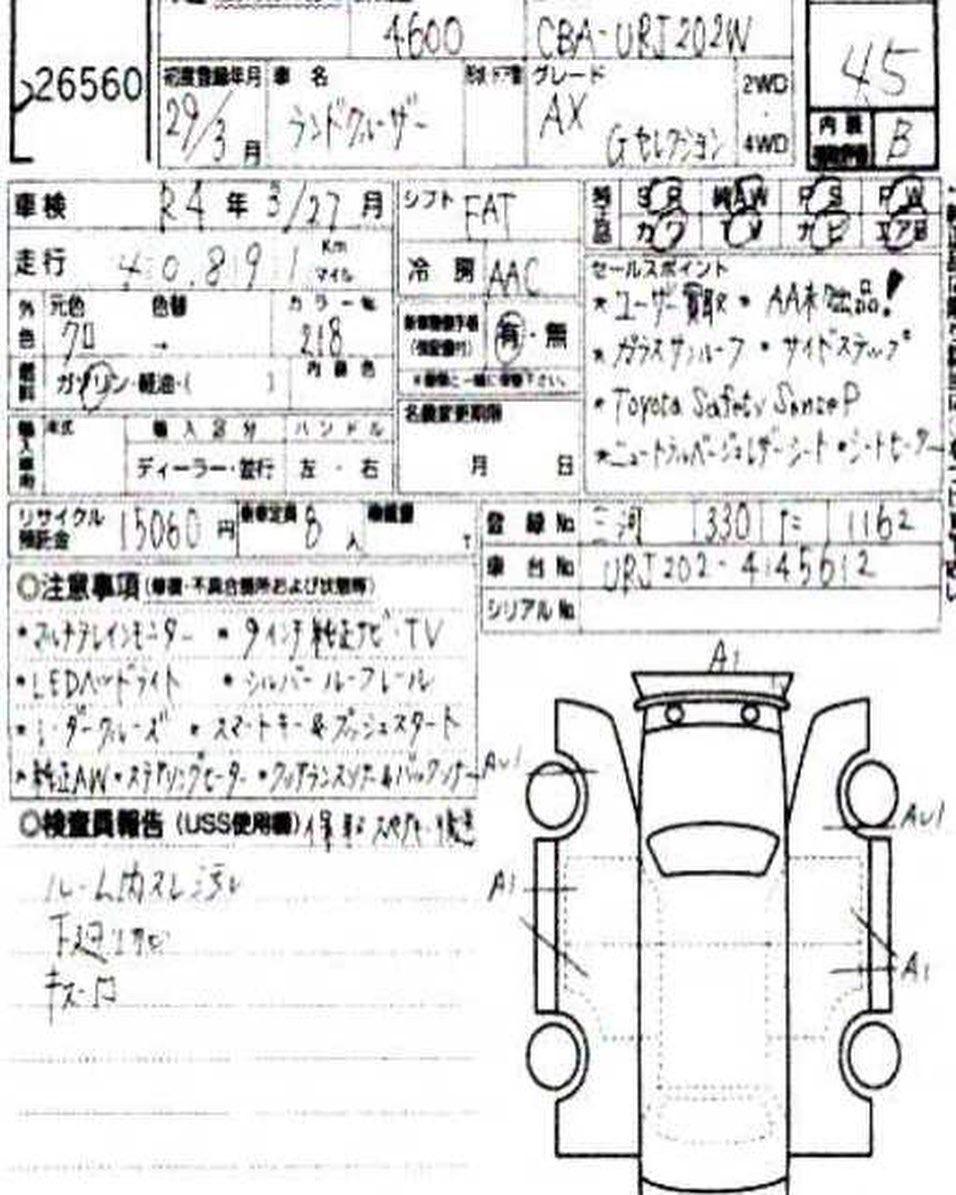 4600 CBA-URJ202W
26560
初度登録年月 車名 グレード 2WD・4WD
29/3月 ランドクルーザー AX Gセレクション
45
内装 B
車検 R4年3/27月
シフト FAT
SR AW PS PW
カワ TV ナビ エアB
走行 40,891 Km マイル
冷房 AAC
セールスポイント
*ユーザー買取 • AA未出品!
*ガラスサンルーフ • サイドステップ
*Toyota Safety Sense P
*ニュートラルベージュレザーシート •シートヒーター
外色 元色 色替 カラーNo
クロ → 218
有・無
内装色
燃料 ガソリン・軽油・( )
名義変更期限
月 日
輸入車 年式 輸入区分 ハンドル
ディーラー・並行 左・右
リサイクル預託金 15060円 乗車定員 8人 積載量
登録No 三河 330 た 1162
車台No URJ202-4145612
シリアルNo
◎注意事項(修復・不具合箇所および状態等)
•マルチテレインモニター •9インチ純正ナビ・TV
•LEDヘッドライト •シルバールーフレール
•レーダークルーズ •スマートキー&プッシュスタート
•純正AW•ステアリングヒーター•クリアランスソナー&バックソナー
◎検査員報告(USS使用欄)
ルーム内スレ汚レ
下廻サビ
キズ凹
A1
AU1
AU1
A1
A1